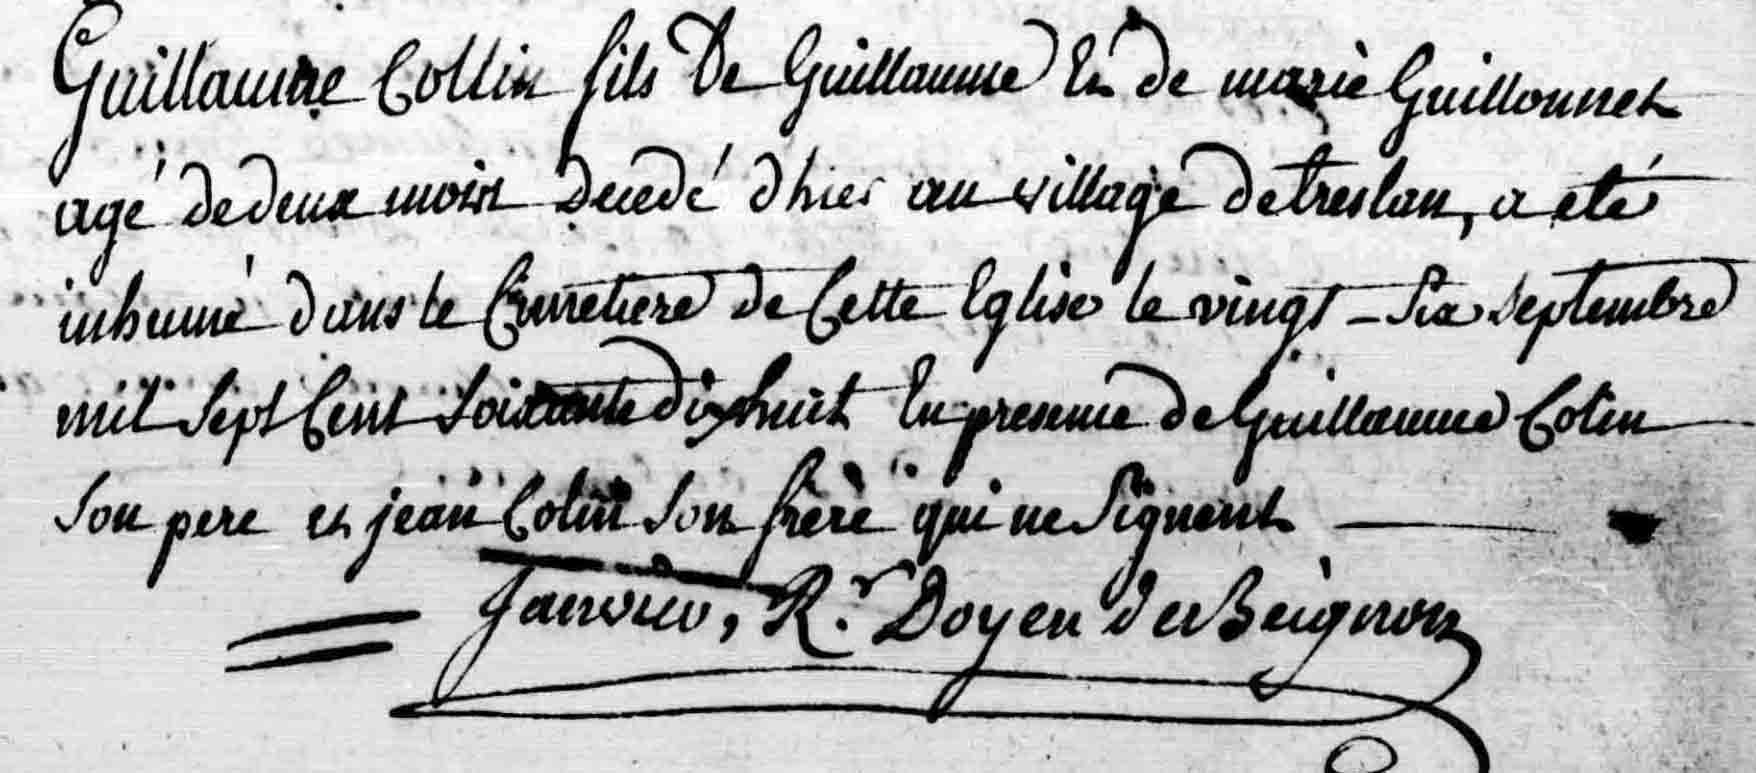 Guillaume Collin fils De Guillaume Et de marie Guillonnet
agé de deux mois decedé d'hier au village de treslan, a eté
inhumé dans le Cimetiere de Cette Eglise le vingt-six septembre
mil sept Cent soixante dix huit En presence de Guillaume Colin
son pere et jean Colin son frère qui ne signent
R.r Doyen de Beignon